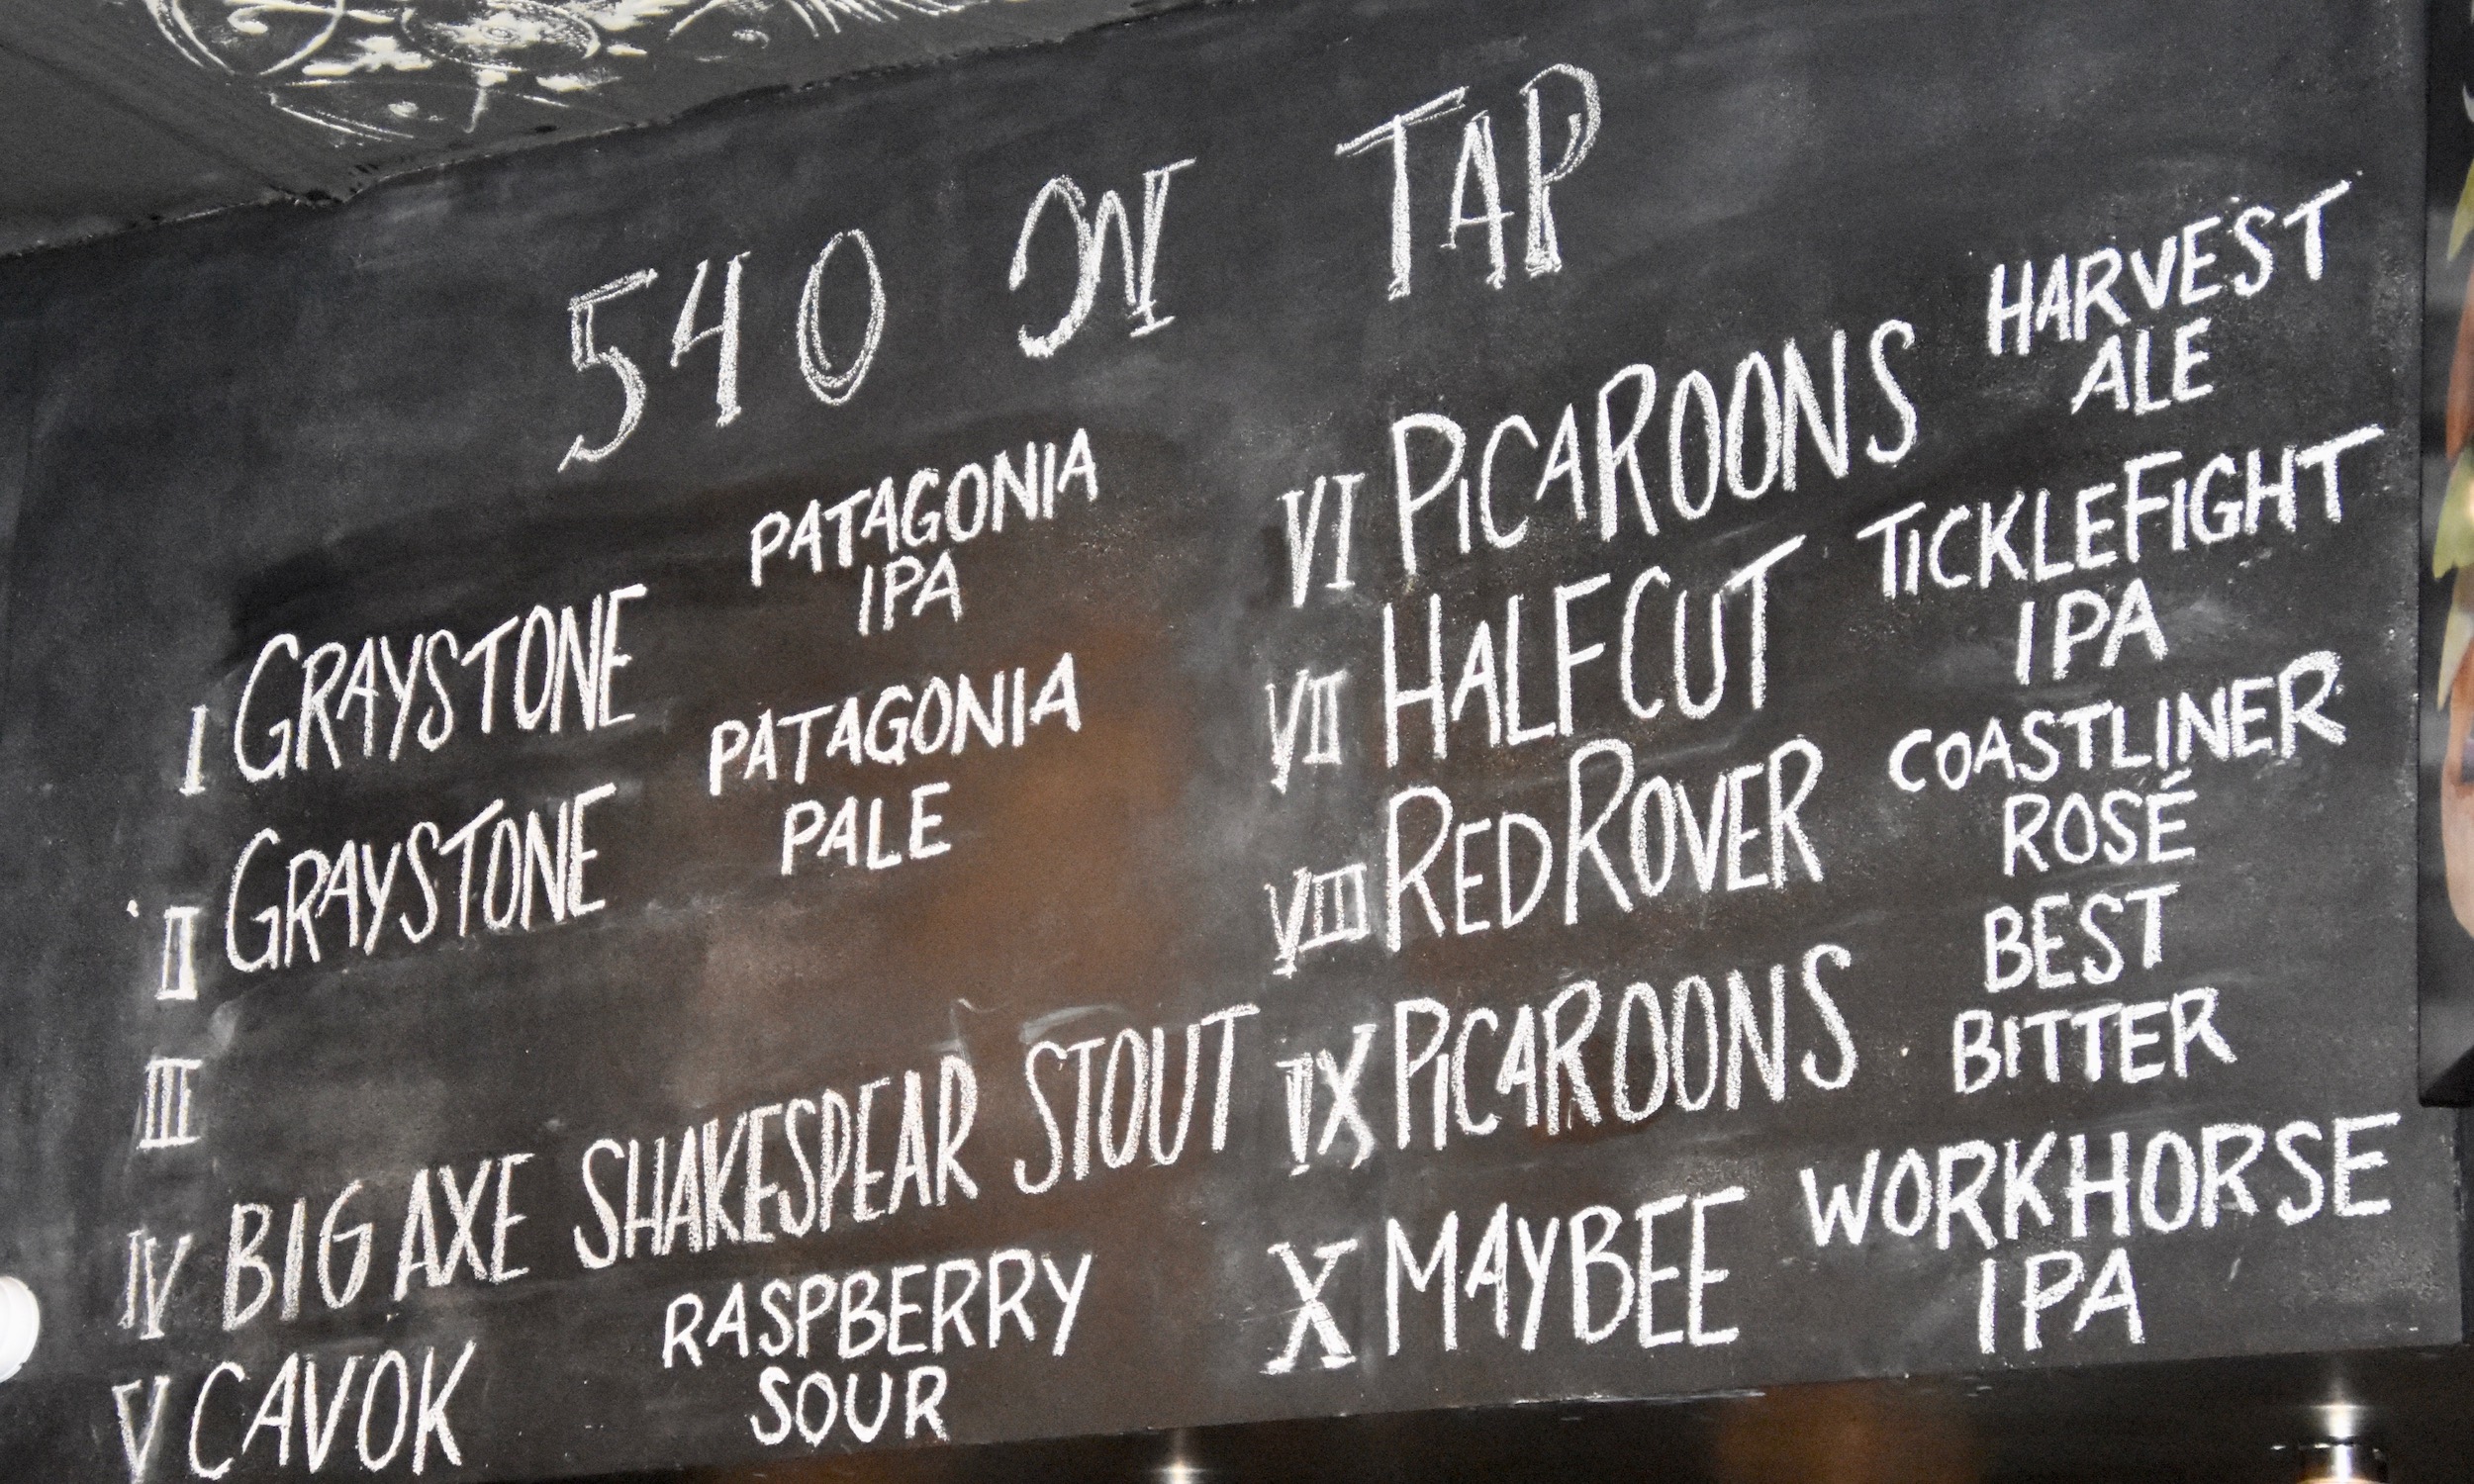 540 ON TAP
I GRAYSTONE PATAGONIA
IPA
II GRAYSTONE PATAGONIA
PALE
III
IV BIG AXE SHAKESPEAR STOUT
V CAVOK RASPBERRY
SOUR
VI PICAROONS HARVEST
ALE
VII HALFCUT TICKLEFIGHT
IPA
VIII RED ROVER COASTLINER
ROSÉ
IX PICAROONS BEST
BITTER
X MAYBEE WORKHORSE
IPA